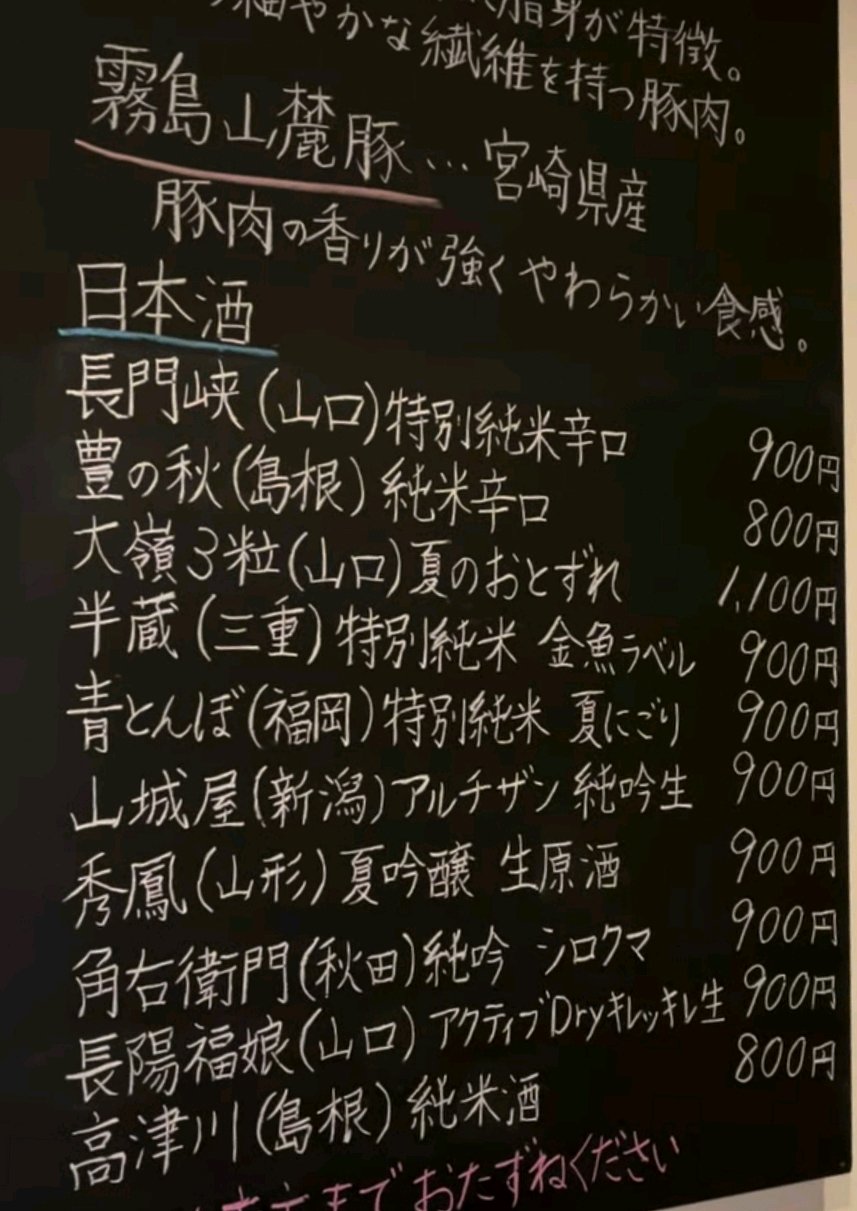 細やかな繊維を持つ豚肉。
脂身が特徴。
霧島山麓豚…宮崎県産
豚肉の香りが強くやわらかい食感。
日本酒
長門峡(山口)特別純米辛口 900円
豊の秋(島根)純米辛口 800円
大嶺3粒(山口)夏のおとずれ 1,100円
半蔵(三重)特別純米 金魚ラベル 900円
青とんぼ(福岡)特別純米 夏にごり 900円
山城屋(新潟)アルチザン 純吟生 900円
秀鳳(山形)夏吟醸 生原酒 900円
角右衛門(秋田)純吟 シロクマ 900円
長陽福娘(山口)アクティブDryキレッキレ生 900円
高津川(島根)純米酒 800円
までおたずねください